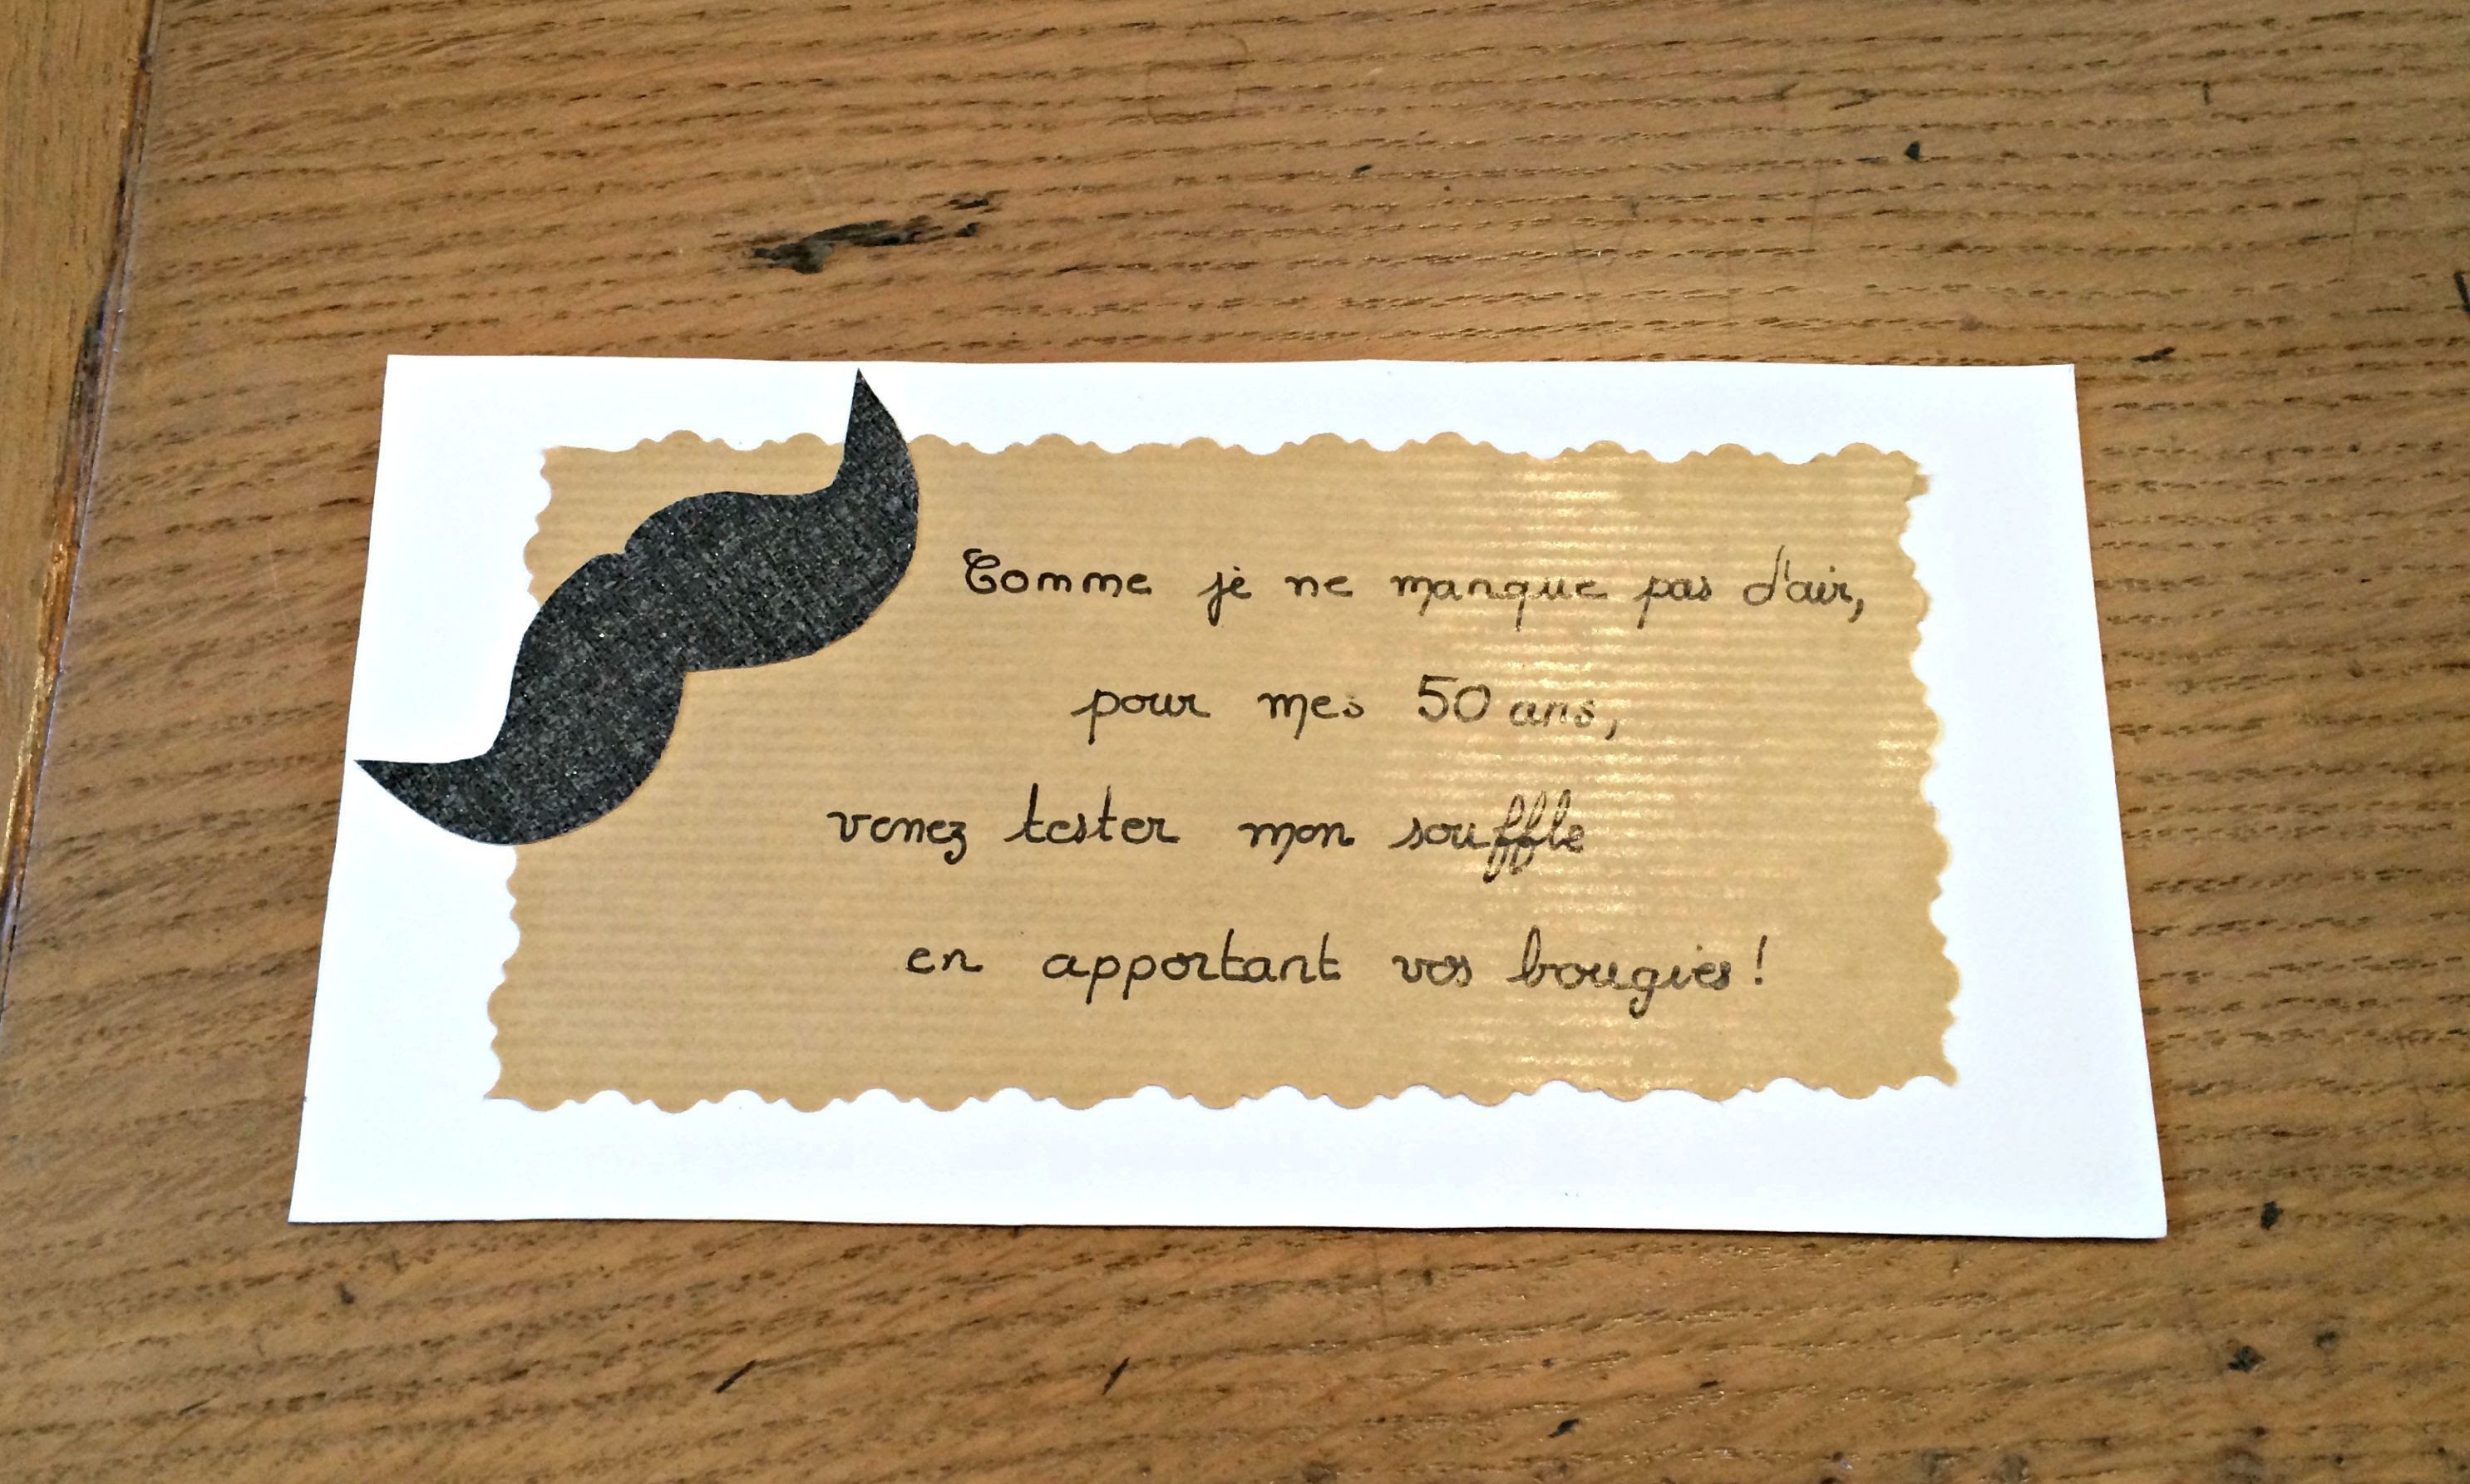 Comme je ne manque pas d'air,
pour mes 50 ans,
venez tester mon souffle
en apportant vos bougies !